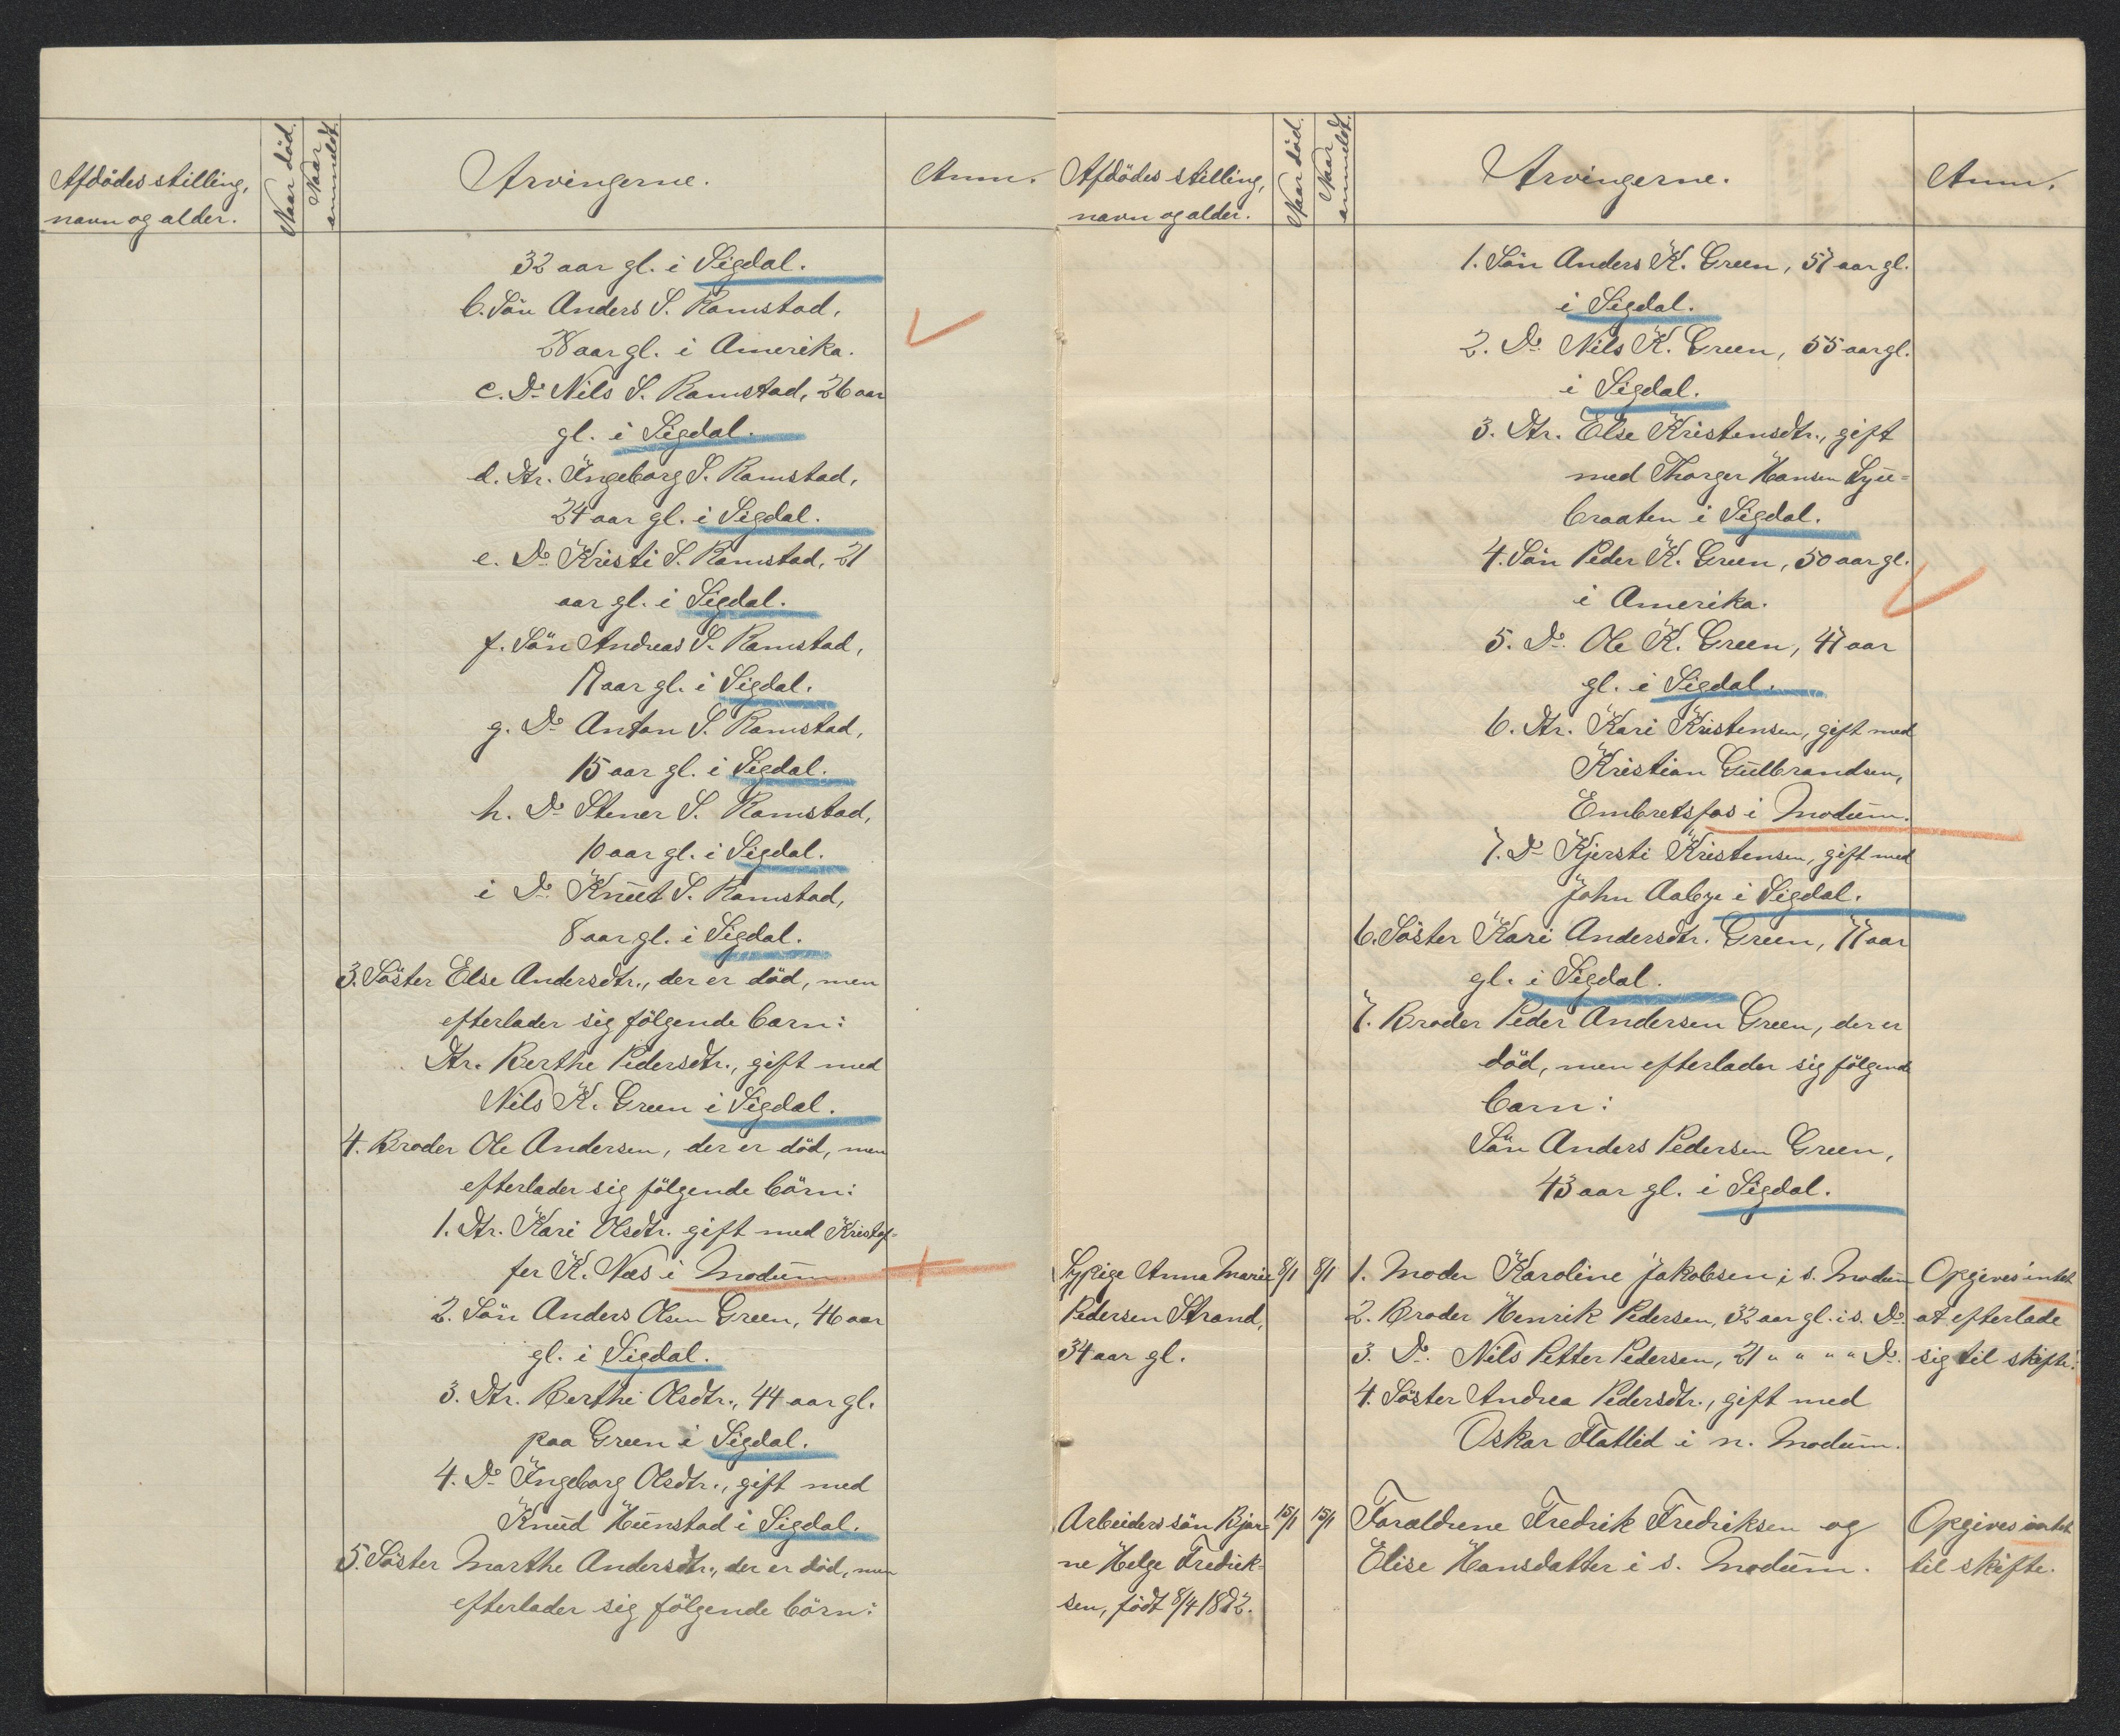 Afdödes stilling,
navn og alder.
Naar död.
Naar
anmeldt.
Arvingerne.
Anm.
32 aar gl. i Sigdal.
b. Sön Anders S. Ramstad,
28 aar gl. i Amerika.
c. Do Nils S. Ramstad, 26 aar
gl. i Sigdal.
d. Dtr. Ingeborg S. Ramstad,
24 aar gl. i Sigdal.
e. Do Kristi S. Ramstad, 21
aar gl. i Sigdal.
f. Sön Andreas S. Ramstad,
17 aar gl. i Sigdal.
g. Do Anton S. Ramstad,
15 aar gl. i Sigdal.
h. Do Stener S. Ramstad,
10 aar gl. i Sigdal.
i Do Knut S. Ramstad,
8 aar gl. i Sigdal.
3. Söster Else Andersdtr., der er död, men
efterlader sig fölgende barn:
Dtr. Berthe Pedersdtr., gift med
Nils K. Green i Sigdal.
4. Broder Ole Andersen, der er död, men
efterlader sig fölgende börn:
1. Dtr. Kari Olsdtr. gift med Kristof-
fer K. Næs i Modum.
2. Sön Anders Olsen Green, 46 aar
gl. i Sigdal.
3. Dtr. Berthe Olsdtr., 44 aar gl.
paa Green i Sigdal.
4. Do Ingeborg Olsdtr., gift med
Knud Hunstad i Sigdal.
5. Söster Marthe Andersdtr., der er död, men
efterlader sig fölgende börn:
Afdödes stilling,
navn og alder.
Naar död.
Naar
anmeldt.
Arvingerne.
Anm.
1. Sön Anders K. Green, 57 aar gl.
i Sigdal.
2. Do Nils K. Green, 55 aar gl.
i Sigdal.
3. Dtr. Else Kristensdtr., gift
med Thorger Hansen
braaten i Sigdal.
4. Sön Peder K. Green, 50 aar gl.
i Amerika.
5. Do. Ole K. Green, 47 aar
gl. i Sigdal.
6. Dtr. Kari Kristensen, gift med
Kristian Gulbrandsen,
Embretsfos i Modum.
7. Do Kjersti Kristensen, gift med
John Aabye i Sigdal.
6. Söster Kari Andersdtr. Green, 77 aar
gl. i Sigdal.
7. Broder Peder Andersen Green, der er
död, men efterlader sig fölgende
barn:
Sön Anders Pedersen Green,
43 aar gl. i Sigdal.
Sypige Anna Marie 8/1 8/1 1. Moder Karoline Jakobsen i s. Modum Opgives intet
Pedersen Strand, 2. Broder Henrik Pedersen, 32 aar gl. i s. Do. at efterlade
34 aar gl. 3. Do. Nils Petter Pedersen, 21 " " " " Do. sig til skifte.
4. Söster Andrea Pedersdtr., gift med
Oskar Flatlid i n. Modum.
Arbeiderssön Bjar- 15/1 15/1 Forældrene Fredrik Fredriksen og Opgives intet
ne Helge Fredrik- Elise Hansdatter i s. Modum. til skifte.
sen, födt 8/4